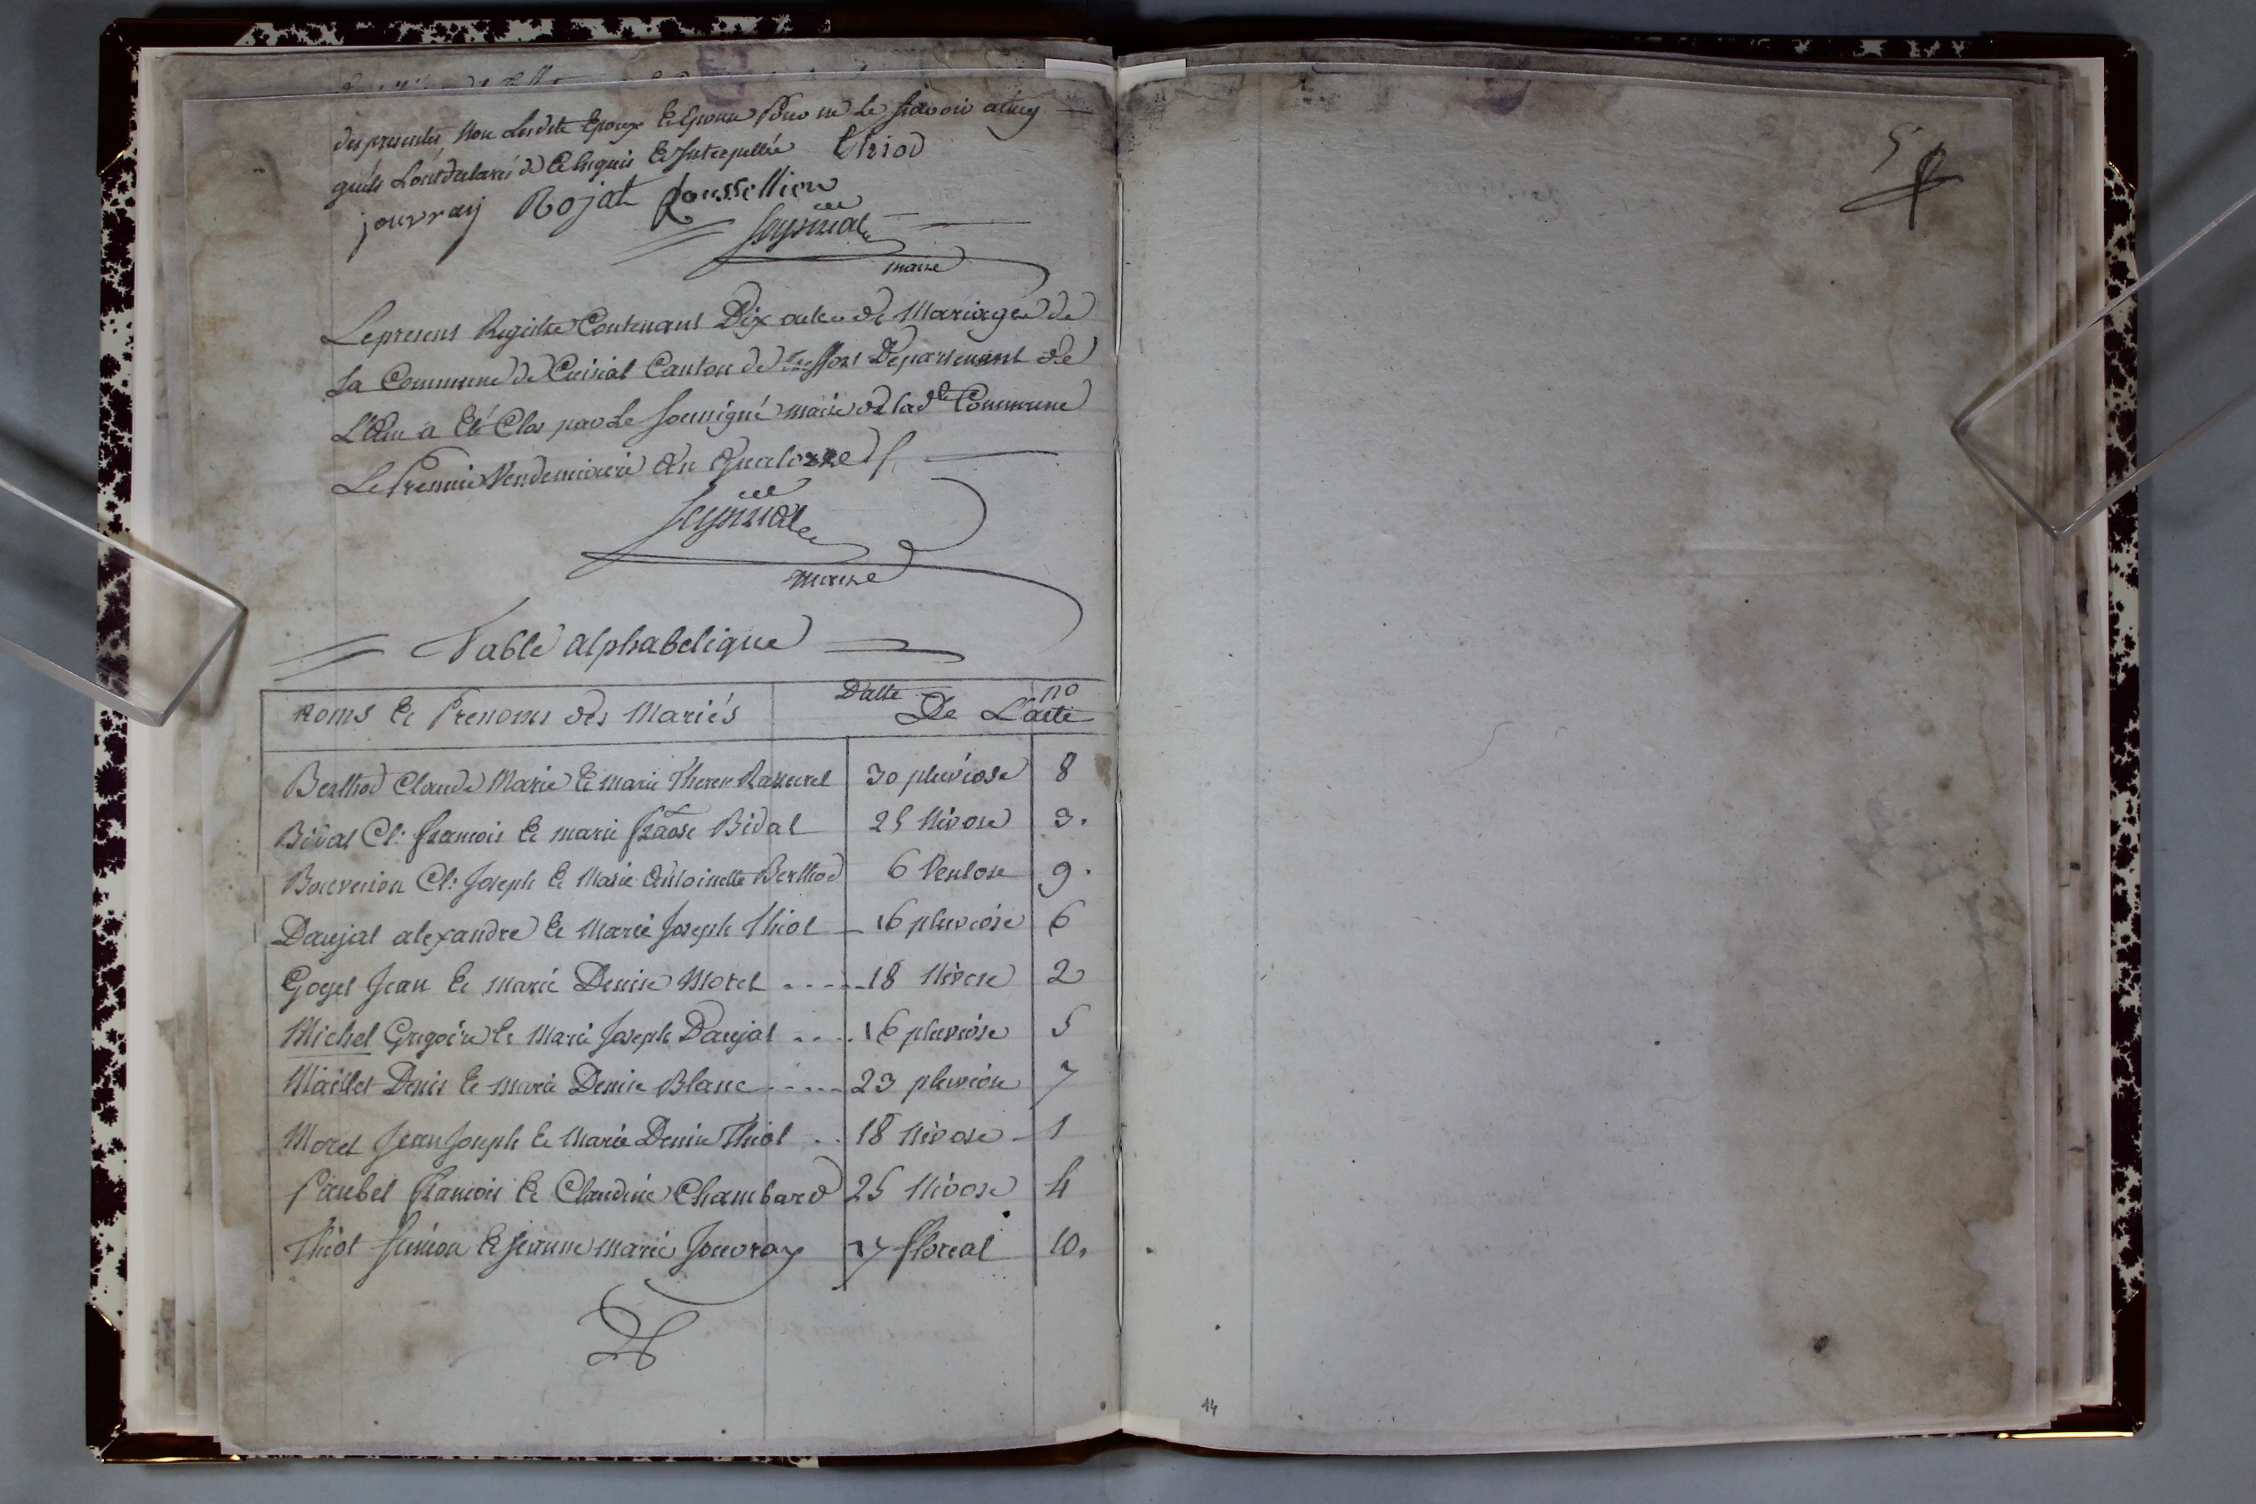 des presentes, Non Lesdits Epoux & Epouse Pour ne Le Scavoir ainsy
quils L'ont declaré de Ce Enquis & Interpellés Thiod
jouvray Rojat Roussellien
maire
Le present Registre Contenant Dix actes de Mariages de
La Commune de Cuisiat Canton de Treffort Departement de
L'Ain a Eté Clos par Le Soussigné maire de lad.te Commune
Le Premier Vendemiaire An Quatorze /.
maire
Table alphabetique
Noms & Prenoms des Mariés Datte De L'acte no
Berthod Claude Marie & marie Therese 30 pluviose 8
Bidat Cl: francois & marie fraose Bidat 25 Nivose 3.
Bouvenion Cl: Joseph & Marie Antoinette Berthod 6 Ventose 9.
Daujat alexandre & Marie Joseph Thiot 16 pluviose 6
Goyet Jean & marie Denise Moret 18 Nivose 2
Michel Gregoire & Marie Joseph Daujat 16 pluviôse 5
Maillet Denis & marie Denise Blanc 23 pluviose 7
Moret Jean Joseph & Marie Denise Thiot 18 Nivose 1
Paubel francois & Claudine Chambard 25 Nivose 4
Thiot Simeon & Jeanne marie Jouvray 27 floreal 10.
5
14